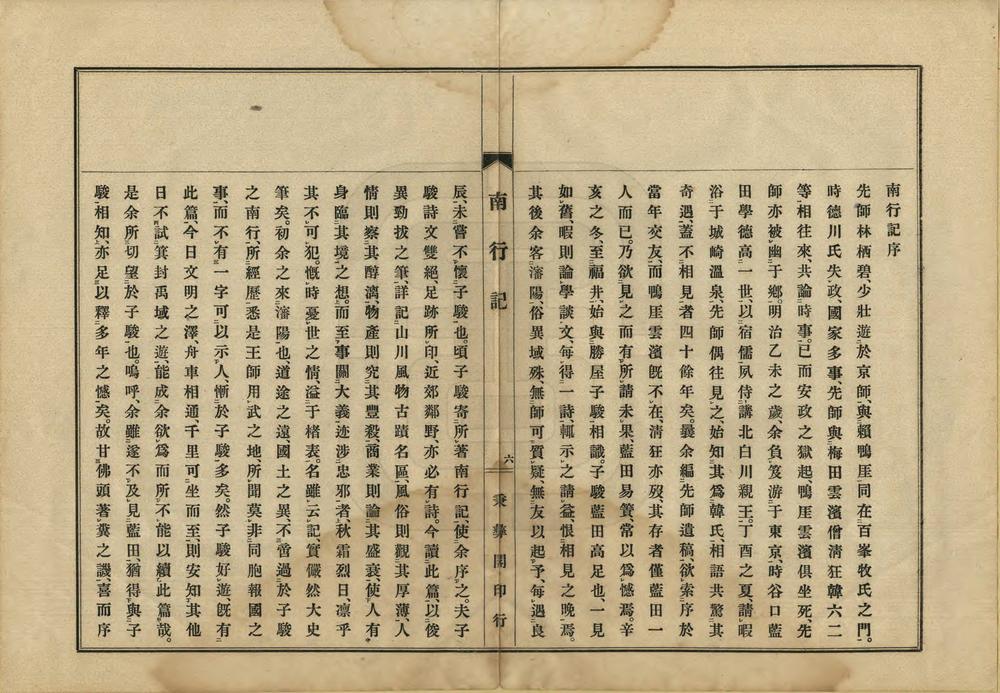 南行記序
先師林栖碧、少壯遊於京師、與賴鴨厓、同在百峯牧氏之門。
時德川氏失政、國家多事、先師與梅田雲濱僧淸狂韓六二
等、相往來、共論時事。已而安政之獄起、鴨厓雲濱俱坐死、先
師亦被幽于鄕。明治乙未之歲、余負笈游于東京、時谷口藍
田學德高一世、以宿儒夙侍講北白川親王。丁酉之夏、請暇
浴于城崎溫泉、先師偶往見之、始知其爲韓氏、相語共驚其
奇遇、蓋不相見者四十餘年矣。曩余編先師遺稿、欲索序於
當年交友、而鴨厓雲濱旣不在、淸狂亦歿、其存者僅藍田一
人而已。乃欲見之而有所請未果、藍田易簀、常以爲憾焉。辛
亥之冬、至福井、始與勝屋子駿相識。子駿藍田高足也、一見
如舊、暇則論學談文、每得一詩、輒示之請益、恨相見之晚焉。
其後余客瀋陽、俗異域殊、無師可質疑、無友以起予、每遇良
南行記
六
秉彝閣印行
辰、未嘗不懷子駿也。頃子駿寄所著南行記、使余序之。夫子
駿詩文雙絕、足跡所印、近郊鄰野、亦必有詩。今讀此篇、以俊
異勁拔之筆、詳記山川風物古蹟名區、風俗則觀其厚薄、人
情則察其醇漓、物產則究其豐殺、商業則論其盛衰、使人有
身臨其境之想。而至事關大義迹涉忠邪者、秋霜烈日、凛乎
其不可犯。慨時憂世之情、溢于楮表。名雖云記、實儼然大史
筆矣。初余之來瀋陽也、道途之遠、國土之異、不啻過於子駿
之南行、所經歷、悉是王師用武之地、所聞莫非同胞報國之
事、而不有一字可以示人、慚於子駿多矣。然子駿好遊、旣有
此篇、今日文明之澤、舟車相通、千里可坐而至、則安知其他
日不試箕封禹域之遊、能成余欲爲而所不能以續此篇哉。
是余所切望於子駿也。嗚呼、余雖遂不及見藍田、猶得與子
駿相知、亦足以釋多年之憾矣。故甘佛頭著糞之譏、喜而序